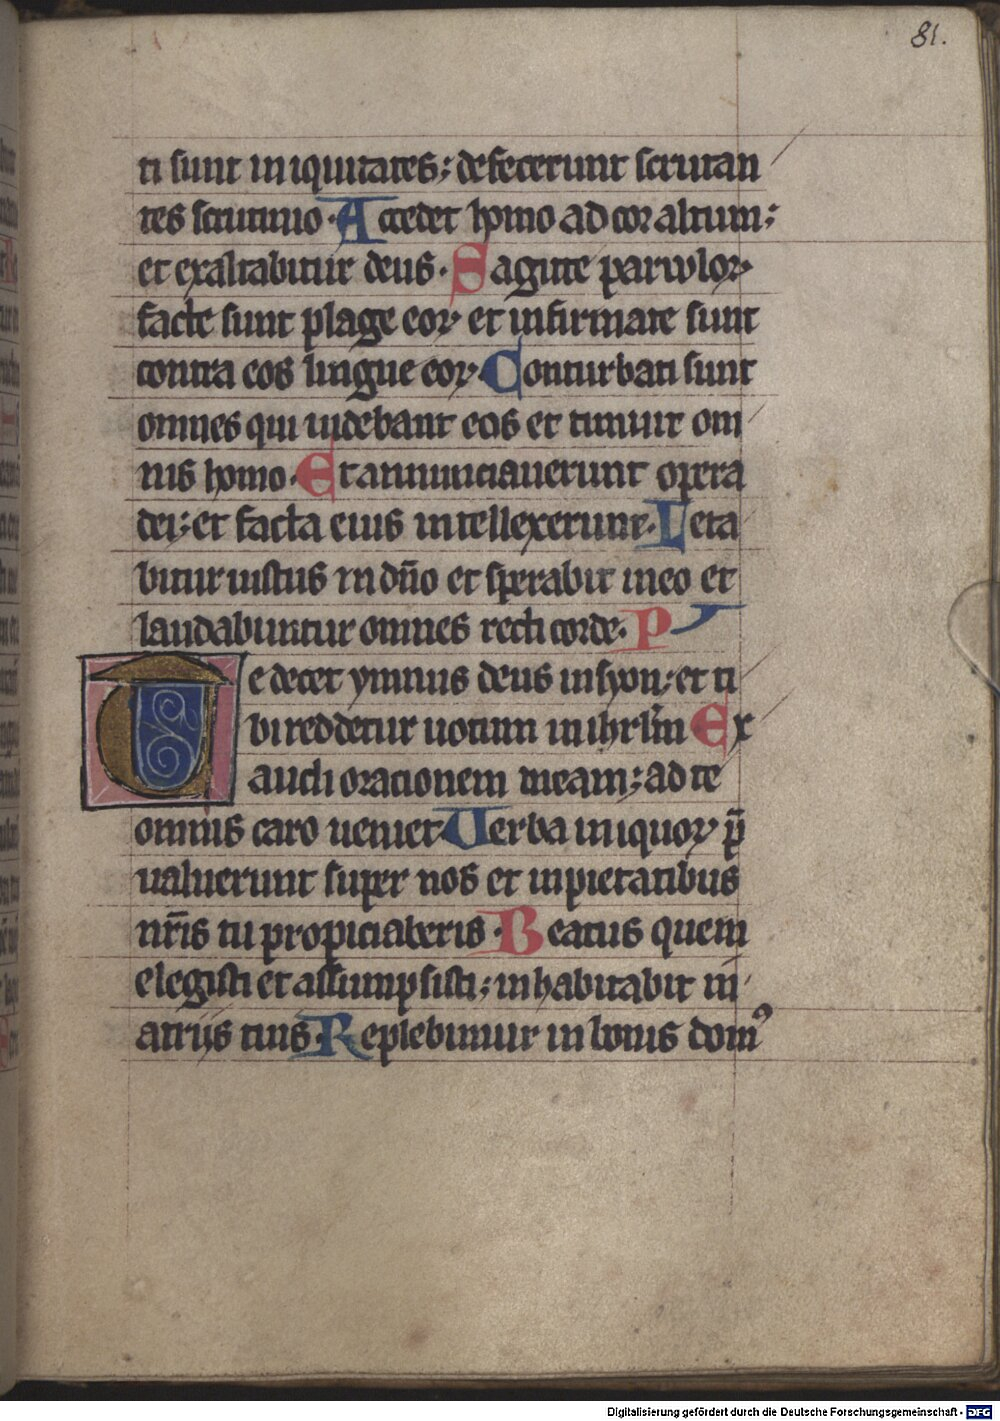 81.
ti sunt iniquitates; defecerunt scrutan
tes scrutinio. Accedet homo ad cor altum;
et exaltabitur deus. Sagitte parvuloꝝ
facte sunt plage eoꝝ et infirmate sunt
contra eos lingue eoꝝ. Conturbati sunt
omnes qui uidebant eos et timuit om
nis homo. Et annunciauerunt opera
dei; et facta eius intellexerunt. Leta
bitur iustus in dn̄o et sperabit in eo et
laudabuntur omnes recti corde. P
Te decet ymnus deus in syon; et ti
bi reddetur uotum in ihrl̄m Ex
audi orationem meam; ad te
omnis caro ueniet Uerba iniquoꝝ p̄
ualuerunt super nos et inpietatibus
nr̄is tu propiciaberis. Beatus quem
elegisti et assumpsisti; inhabitabit in
atriis tuis. Replebimur in bonis domꝰ
Digitalisierung gefördert durch die Deutsche Forschungsgemeinschaft - DFG